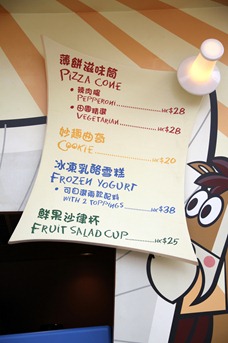 薄餅滋味筒
PIZZA CONE
• 辣肉腸
PEPPERONI HK$28
• 田園精選
VEGETARIAN HK$28
妙趣曲奇
COOKIE HK$20
冰凍乳酪雪糕
FROZEN YOGURT
• 可自選兩款配料
WITH 2 TOPPINGS HK$38
鮮果沙律杯
FRUIT SALAD CUP HK$25